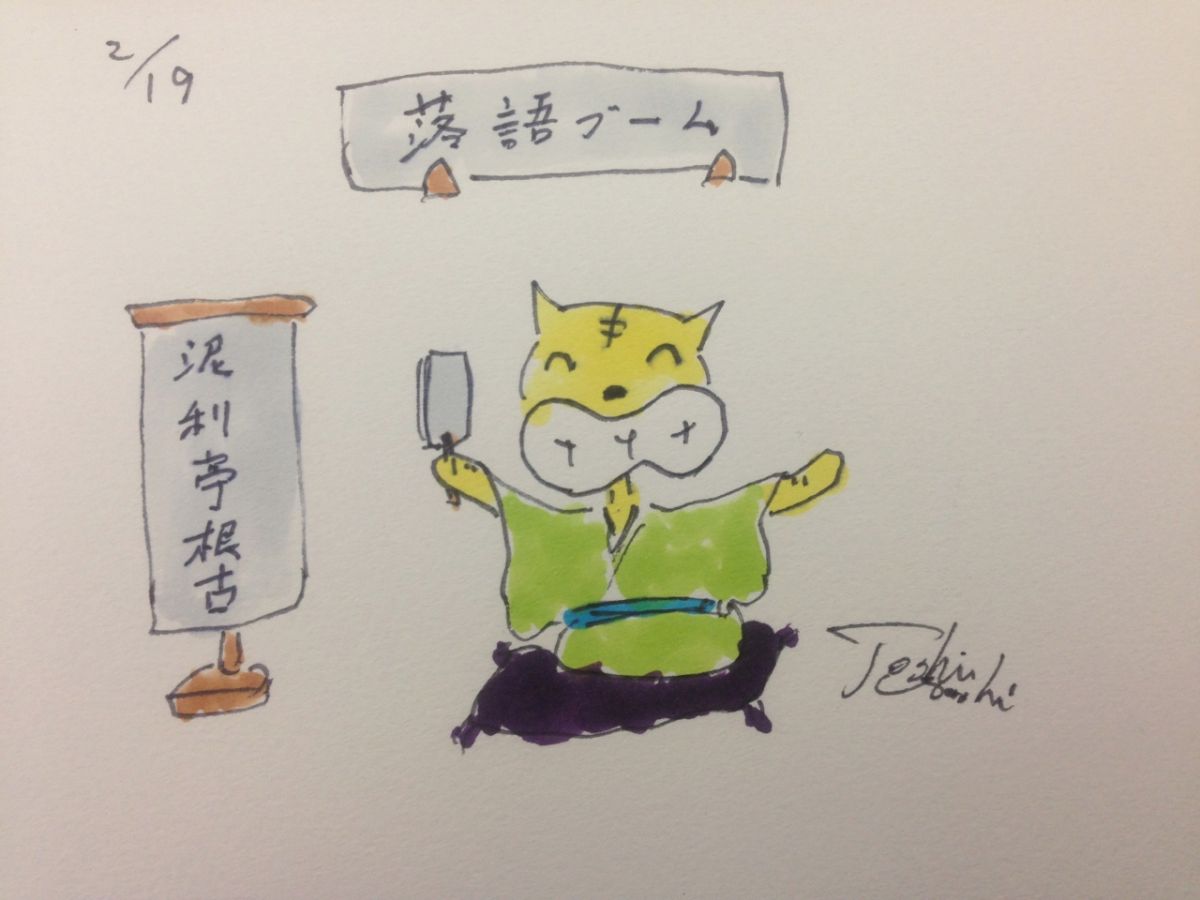 2/19
落語ブーム
泥利亭根古